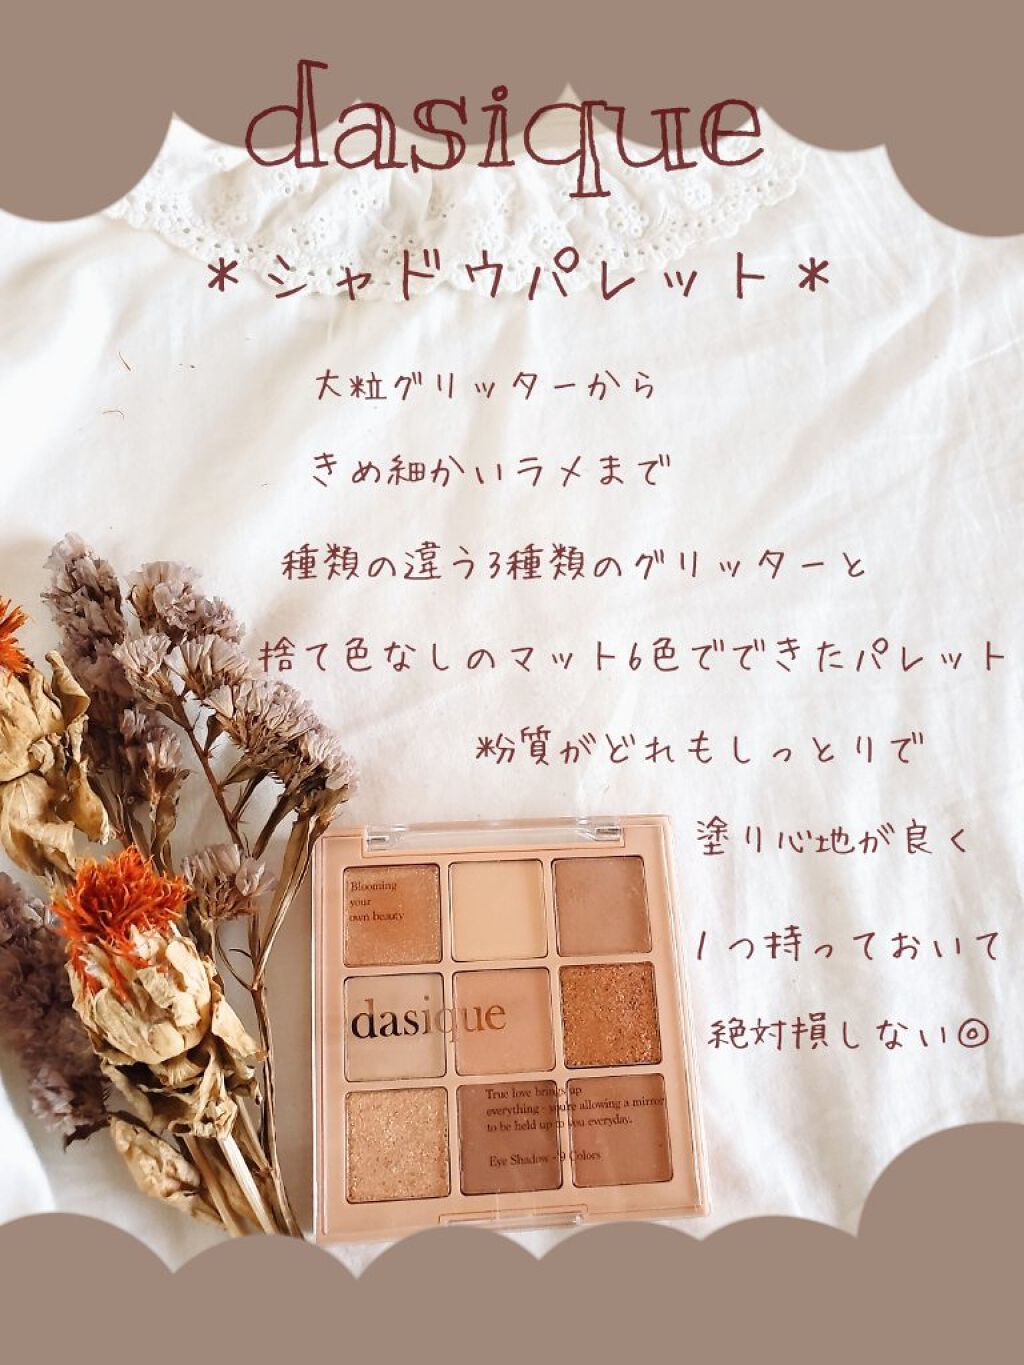 dasique
*シャドウパレット*
大粒グリッターから
きめ細かいラメまで
種類の違う3種類のグリッターと
捨て色なしのマット6色でできたパレット
粉質がどれもしっとりで
塗り心地が良く
1つ持っておいて
絶対損しない◎
Blooming
your
own beauty
dasique
True love brings up
everything - you're allowing a mirror
to be held up to you everyday.
Eye Shadow - 9 Colors